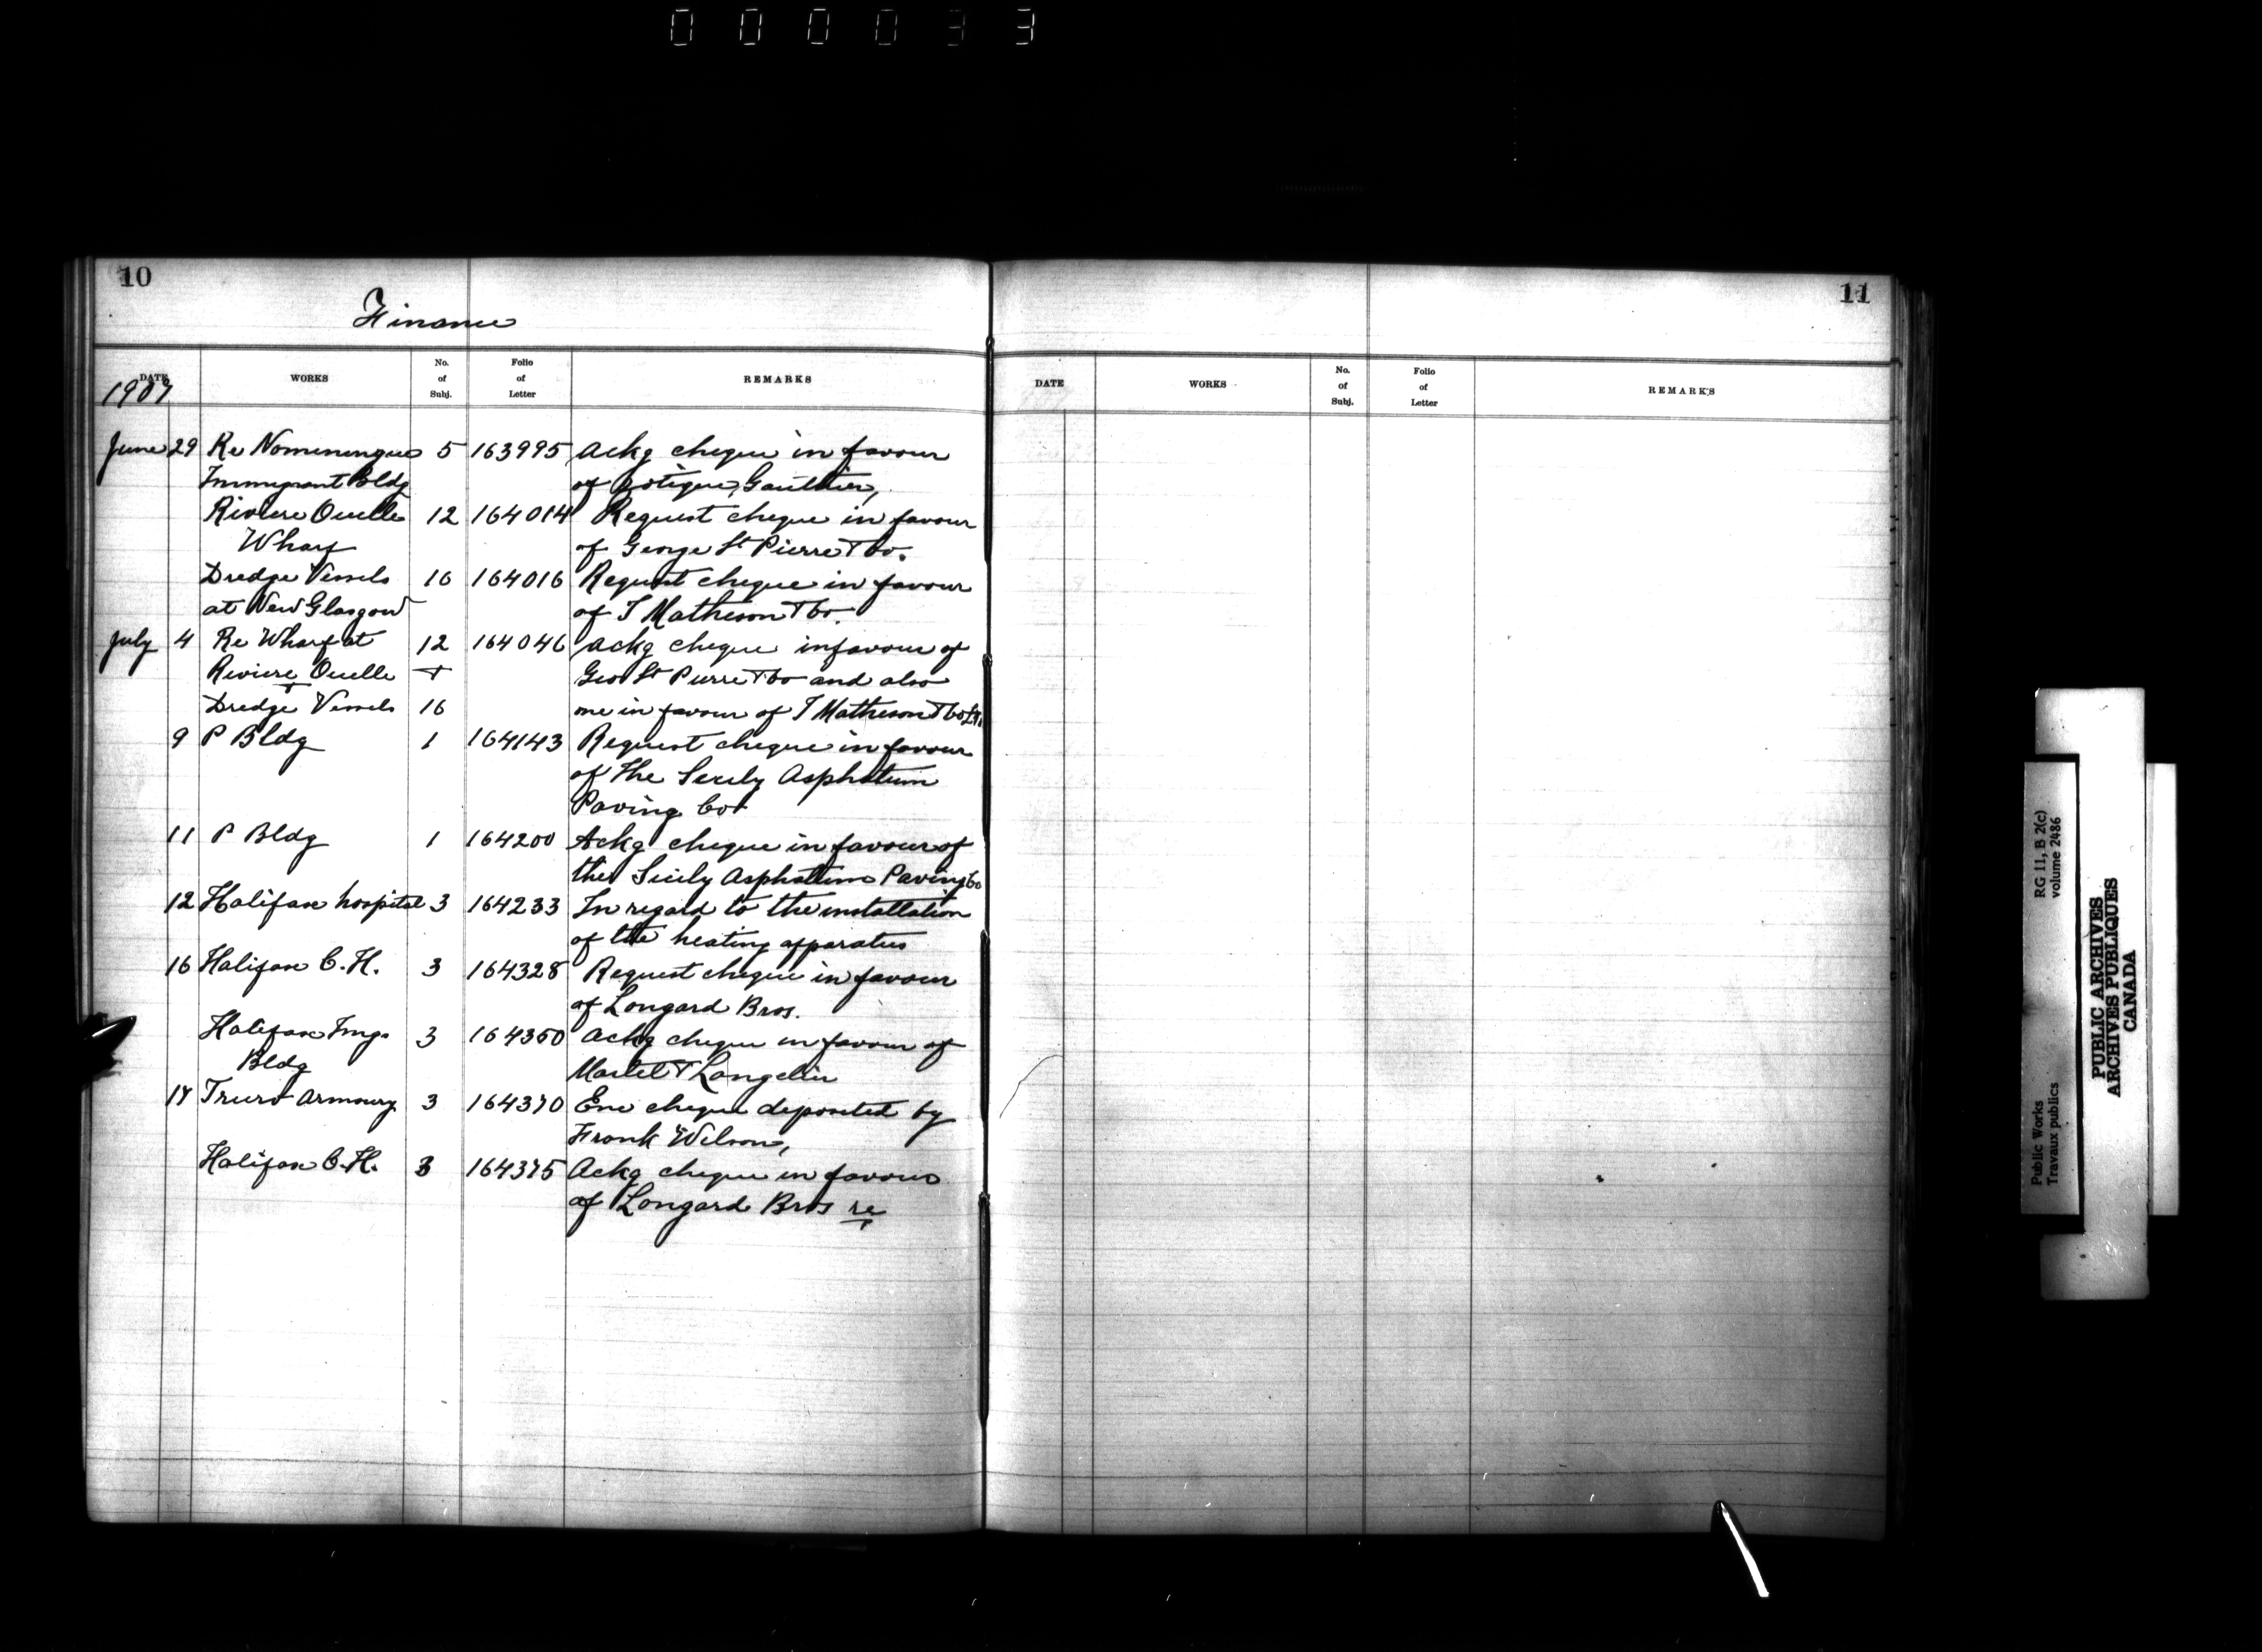 0 0 0 0 3 3
10
Finance
DATE WORKS No. of Subj. Folio of Letter REMARKS
1907
June 29 Re Nomeningue 5 163995 Ackg cheque in favour
Immigrant Bldg of Gauthier,
Riviere Ouelle 12 164014 Request cheque in favour
Wharf of George St Pierre & Co.
Dredge Vessels 16 164016 Request cheque in favour
at New Glasgow of I Matheson & Co.
July 4 Re Wharf at 12 164046 Ackg cheque in favour of
Riviere Ouelle + Geo St Pierre & Co and also
+
Dredge Vessels 16 one in favour of I Matheson & Co Ltd
9 P Bldg 1 164143 Request cheque in favour
of The Sicily Asphaltum
Paving Co
11 P Bldg 1 164200 Ackg cheque in favour of
the Sicily Asphaltum Paving Co
12 Halifax hospital 3 164233 In regard to the installation
of the heating apparatus
16 Halifax C.H. 3 164328 Request cheque in favour
of Longard Bros.
Halifax Img. 3 164350 Ackg cheque in favour of
Bldg Martel & Langelier
17 Truro Armoury 3 164370 Enc cheque deposited by
Frank Wilson,
Halifax C.H. 3 164375 Ackg cheque in favour
of Longard Bros re
11
DATE WORKS No. of Subj. Folio of Letter REMARKS
Public Works RG 11, B 2(c)
Travaux publics volume 2486
PUBLIC ARCHIVES
ARCHIVES PUBLIQUES
CANADA